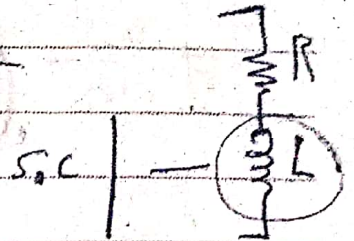 R
S.C
L